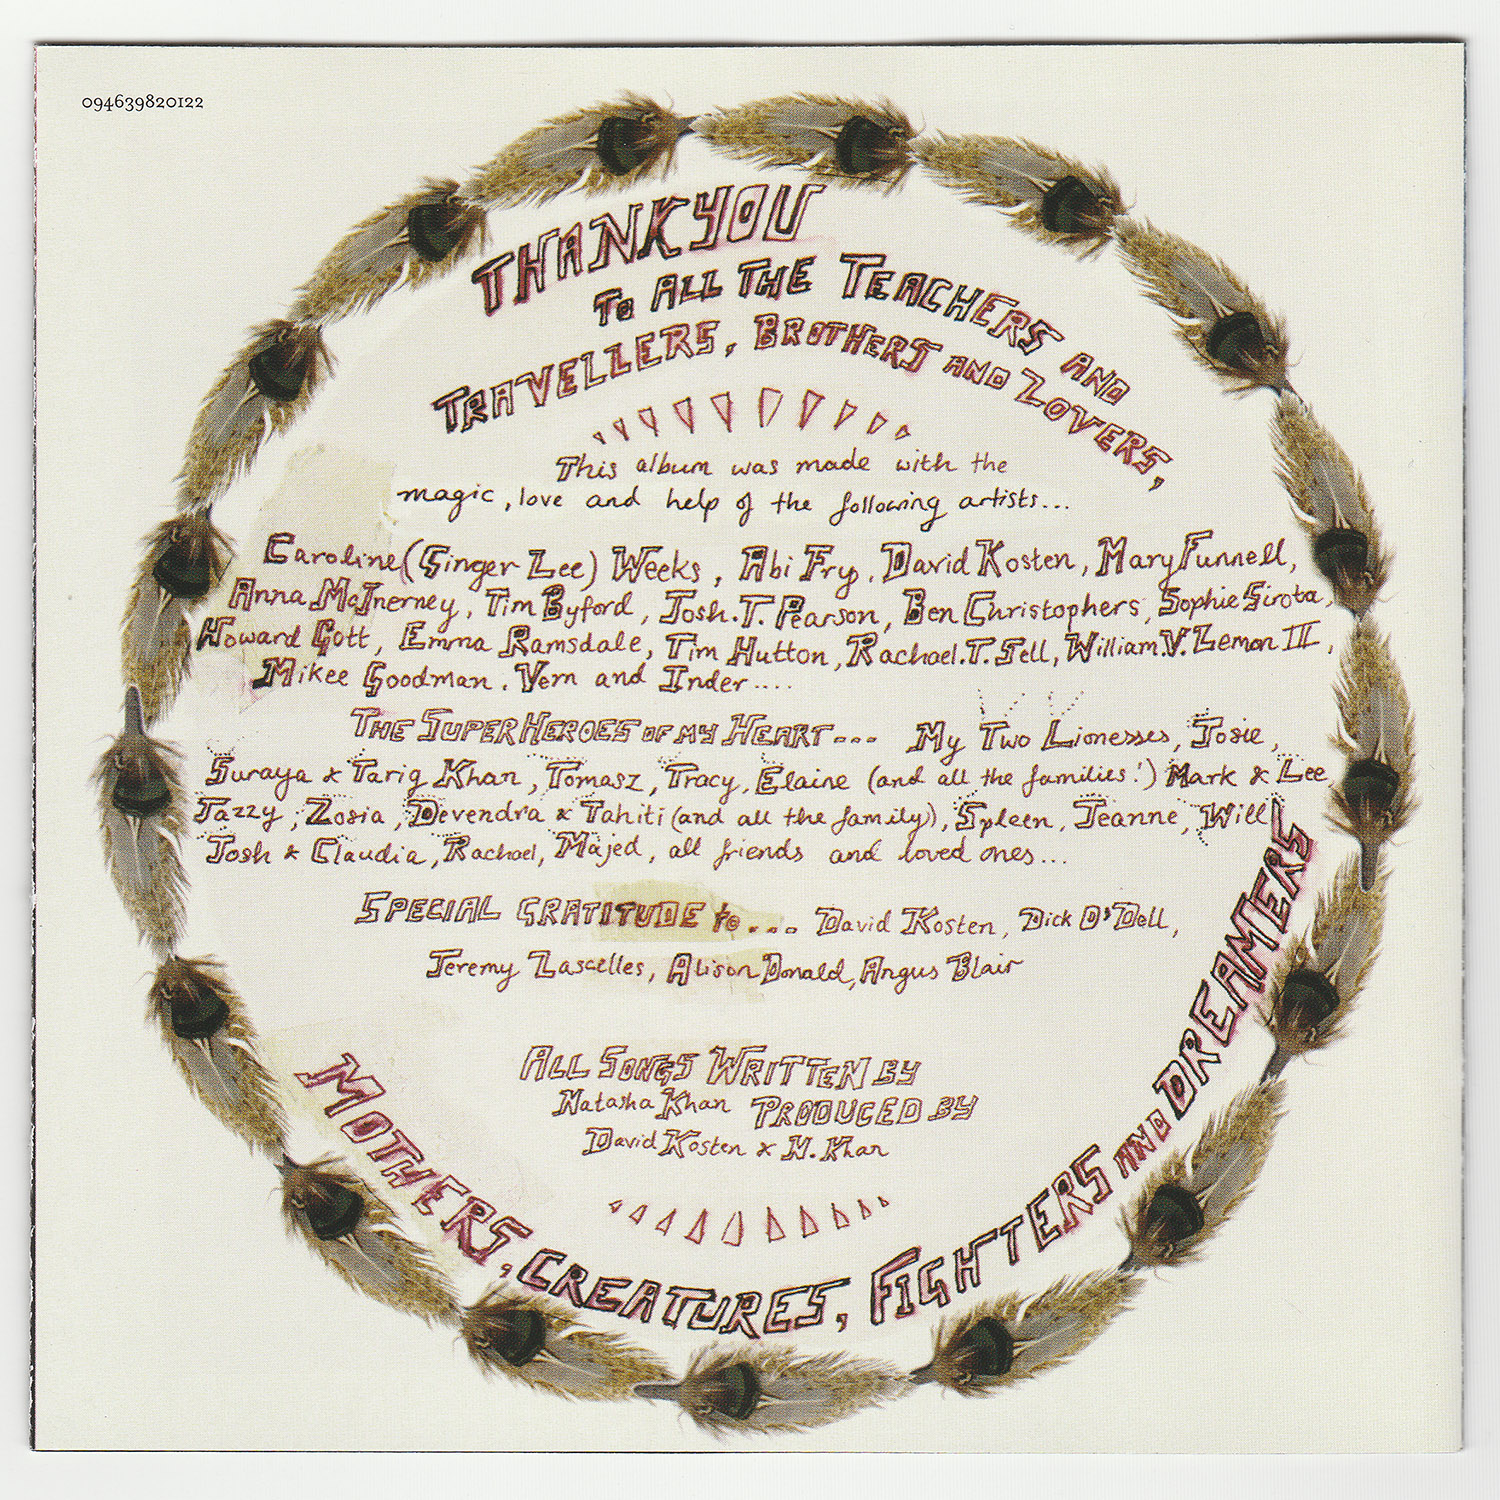 094639820122
THANKYOU
TO ALL THE TEACHERS AND
TRAVELLERS, BROTHERS AND LOVERS,
This album was made with the
magic, love and help of the following artists...
Caroline (Ginger Lee) Weeks, Abi Fry, David Kosten, Mary Funnell,
Anna McInerney, Tim Byford, Josh.T. Pearson, Ben Christophers, Sophie Sirota,
Howard Gott, Emma Ramsdale, Tim Hutton, Rachael.T. Sell, William.V. Lemon III,
Mikee Goodman. Vern and Inder....
THE SUPERHEROES OF MY HEART... My Two Lionesses, Josie,
Suraya & Tariq Khan, Tomasz, Tracy, Elaine (and all the families!) Mark & Lee
Jazzy, Zosia, Devendra & Tahiti (and all the family), Spleen, Jeanne, Will
Josh & Claudia, Rachael, Majed, all friends and loved ones...
SPECIAL GRATITUDE to... David Kosten, Dick O'Dell,
Jeremy Lascelles, Alison Donald, Angus Blair
ALL SONGS WRITTEN BY
Natasha Khan PRODUCED BY
David Kosten & N. Khan
MOTHERS, CREATURES, FIGHTERS AND DREAMERS